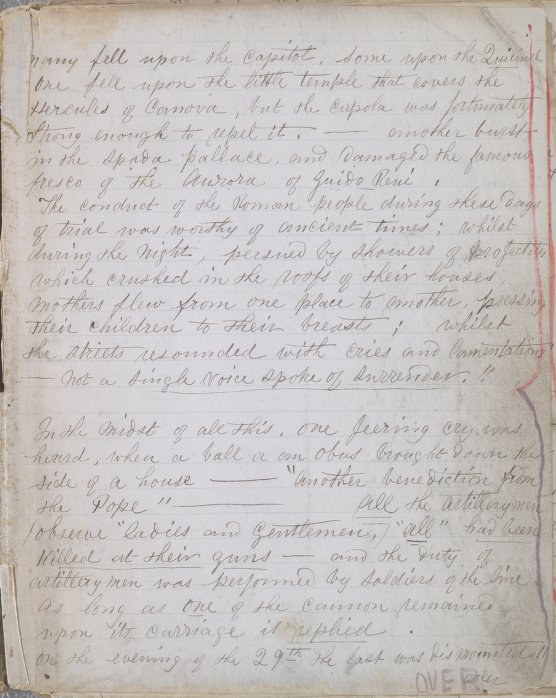 many fell upon the capitol, some upon the Quirinal
One fell upon the little temple that covers the
Hercules of Canova, but the cupola was fortunately
strong enough to repel it. — another burst
in the Spada pallace, and damaged the famous
fresco of the Aurora of Guido Reni.
The conduct of the Roman people during these days
of trial was worthy of ancient times; whilst
during the Night, persued by showers of projectiles
which crushed in the roofs of their houses
Mothers flew from one place to another, pressing
their children to their breasts; whilst
the streets resounded with cries and lamentations
— not a single voice spoke of surrender."
In the midst of all this, one jeering cry was
heard, when a ball or an obus brought down the
side of a house — "Another benediction from
the Pope" — All the artillerymen
(observe "ladies and Gentlemen,) "all" had been
killed at their guns — and the duty of
artillerymen was performed by soldiers of the line.
As long as one of the cannon remained
upon its carriage it replied
on the evening of the 29th the last was dismounted!!
OVER over